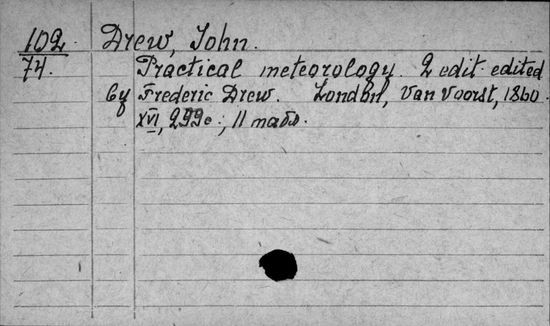 102. Drew, John.
74. Practical meteorology. 2 edit edited
by Frederic Drew. London, Van Voorst, 1860.
XVI, 299c., 11 табл.